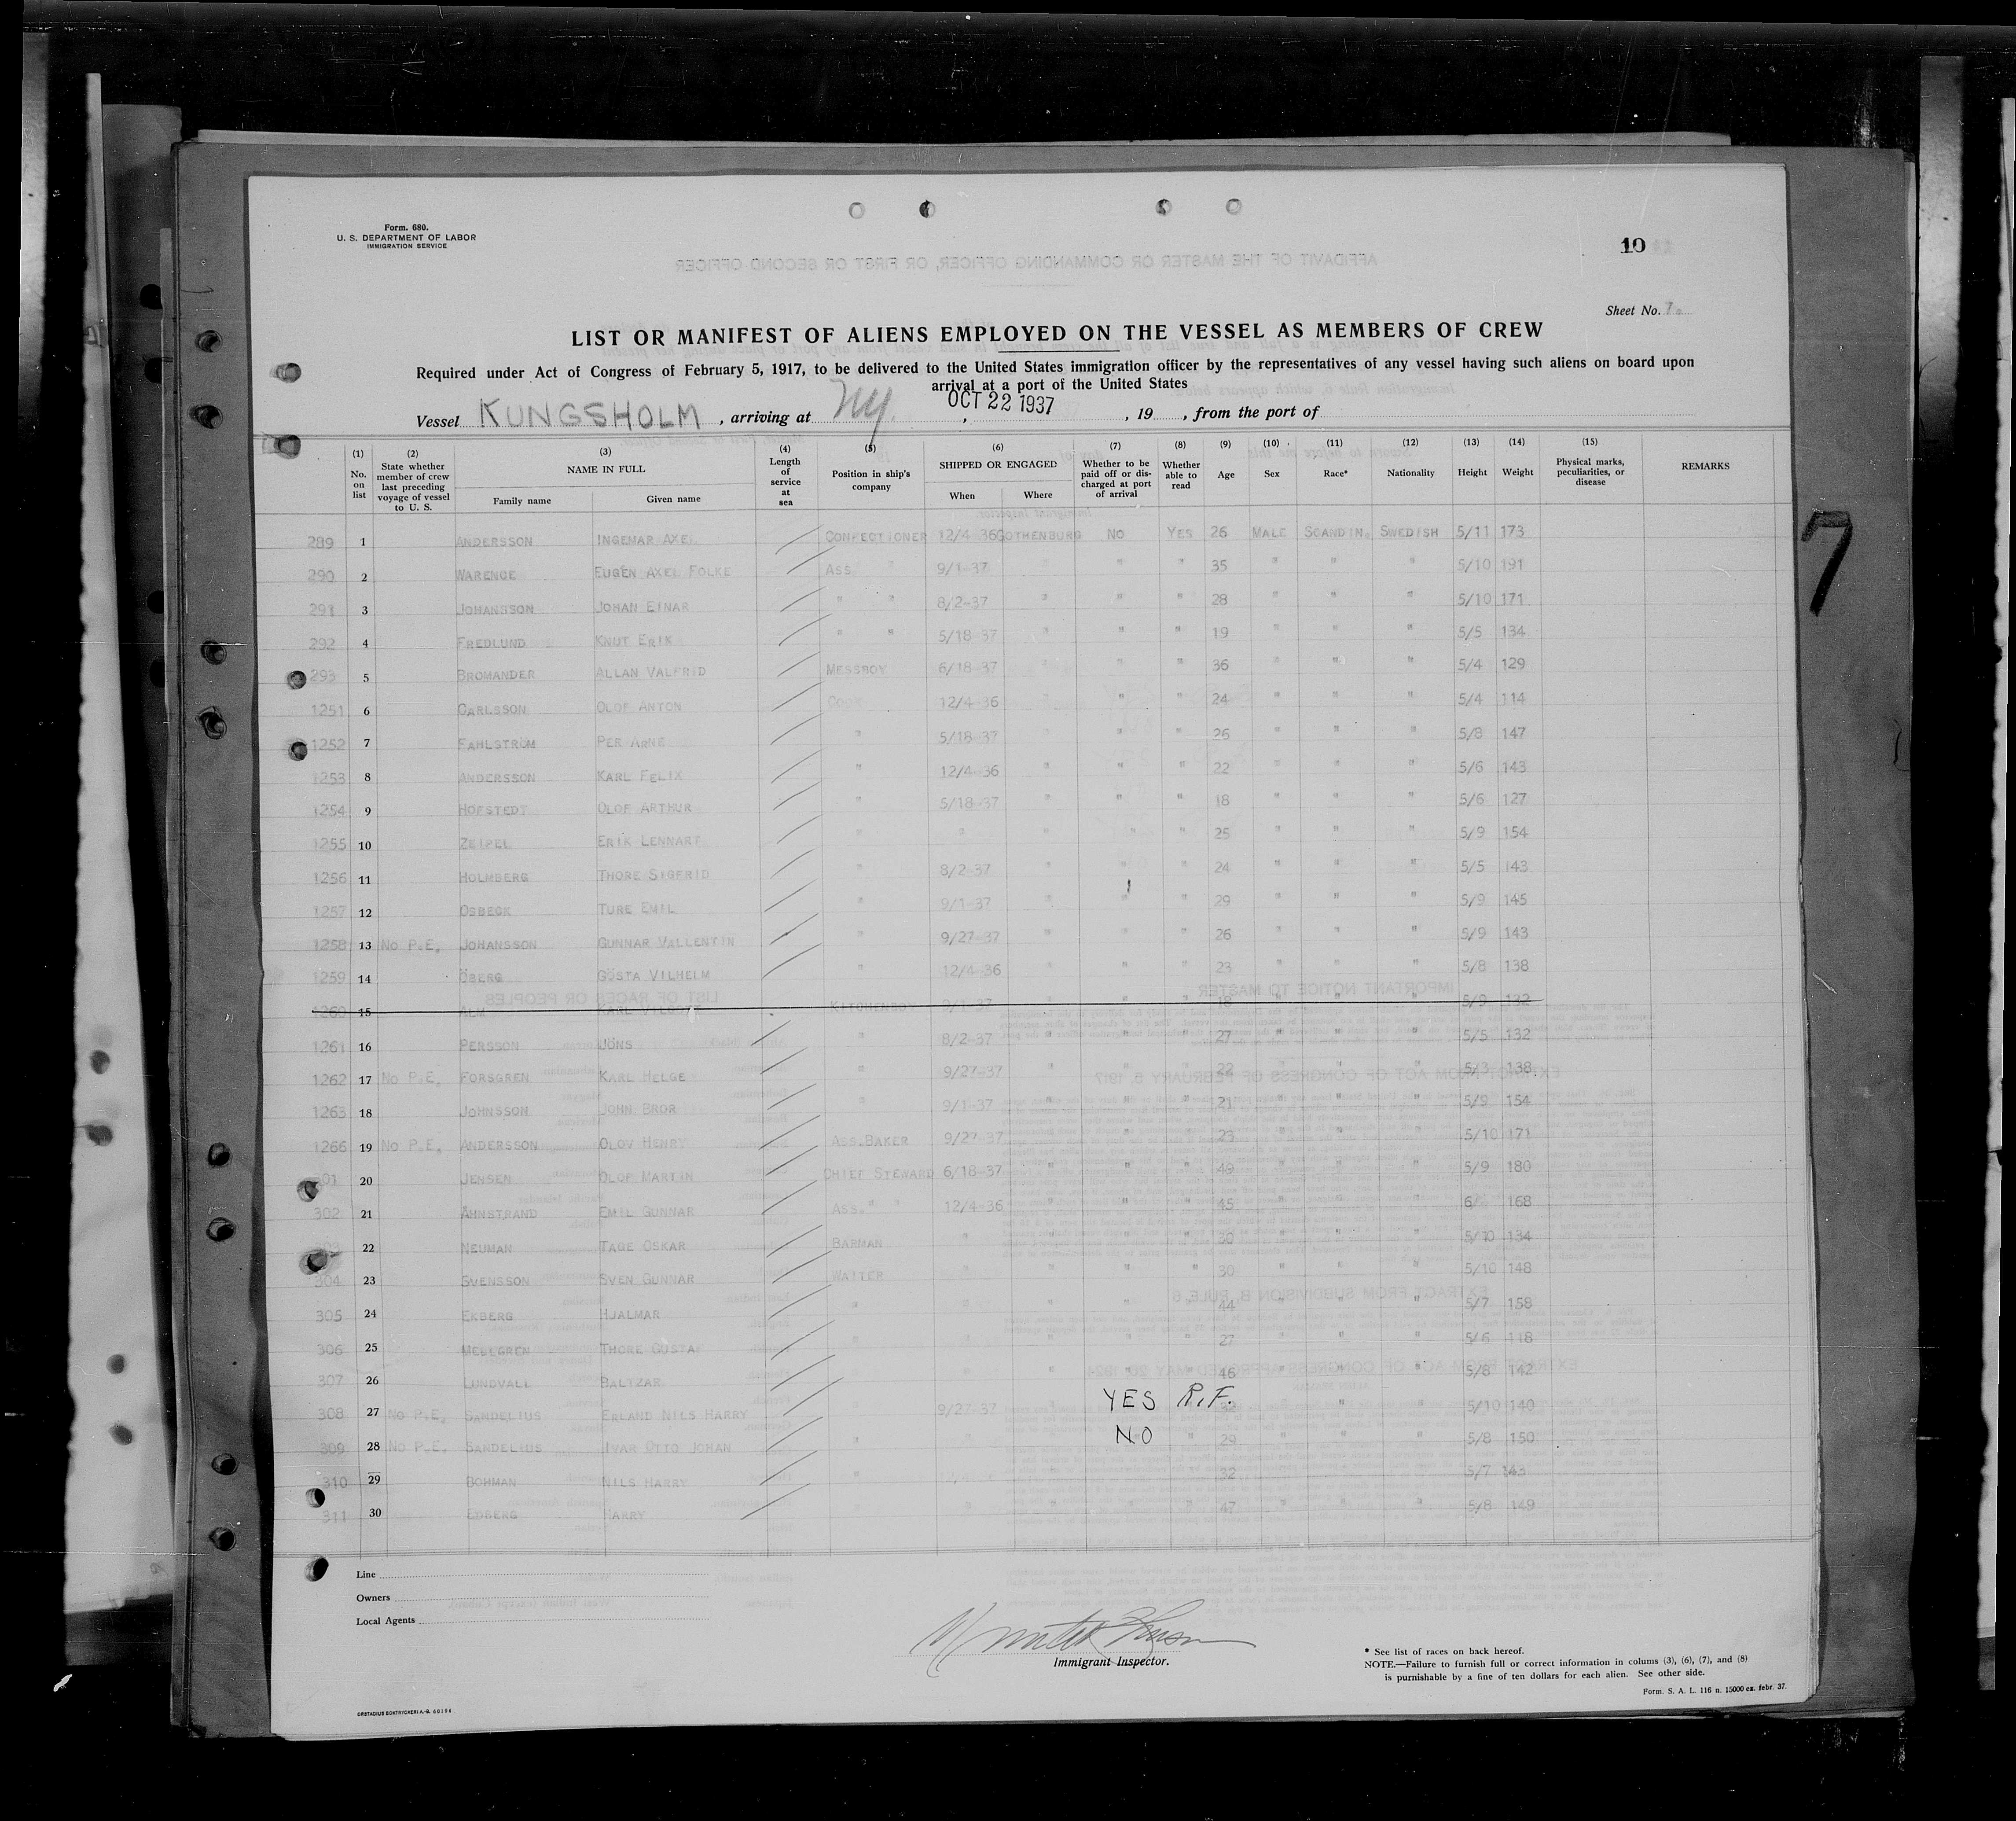 Form. 680.
U. S. DEPARTMENT OF LABOR
IMMIGRATION SERVICE
10
Sheet No. 7
LIST OR MANIFEST OF ALIENS EMPLOYED ON THE VESSEL AS MEMBERS OF CREW
Required under Act of Congress of February 5, 1917, to be delivered to the United States immigration officer by the representatives of any vessel having such aliens on board upon
arrival at a port of the United States
Vessel KUNGSHOLM, arriving at NY, OCT 22 1937, 19, from the port of
(1) No. on list (2) State whether member of crew last preceding voyage of vessel to U. S. (3) NAME IN FULL Family name Given name (4) Length of service at sea (5) Position in ship's company (6) SHIPPED OR ENGAGED When Where (7) Whether to be paid off or discharged at port of arrival (8) Whether able to read (9) Age (10) Sex (11) Race* (12) Nationality (13) Height (14) Weight (15) Physical marks, peculiarities, or disease REMARKS
289 1 ANDERSSON INGEMAR AXEL CONFECTIONER 12/4-36 GOTHENBURG NO YES 26 MALE SCANDIN. SWEDISH 5/11 173
290 2 WARENGE EUGÉN AXEL FOLKE ASS. " 9/1-37 " " 35 " " " 5/10 191
291 3 JOHANSSON JOHAN EINAR " " 8/2-37 " " " 28 " " " 5/10 171
292 4 FREDLUND KNUT ERIK " " 5/18-37 " " " 19 " " " 5/5 134
293 5 BROMANDER ALLAN VALFRID MESSBOY 6/18-37 " " " 36 " " " 5/4 129
1251 6 CARLSSON OLOF ANTON COOK 12/4-36 " " " 24 " " " 5/4 114
1252 7 FAHLSTRÖM PER ARNE " 5/18-37 " " " 26 " " " 5/8 147
1253 8 ANDERSSON KARL FELIX " 12/4-36 " " " 22 " " " 5/6 143
1254 9 HOFSTEDT OLOF ARTHUR " 5/18-37 " " " 18 " " " 5/6 127
1255 10 ZEIPEL ERIK LENNART " " " " " 25 " " " 5/9 154
1256 11 HOLMBERG THORE SIGFRID " 8/2-37 " " " 24 " " " 5/5 143
1257 12 OSBECK TURE EMIL " 9/1-37 " " " 29 " " " 5/9 145
1258 13 NO P.E. JOHANSSON GUNNAR VALLENTIN " 9/27-37 " " " 26 " " " 5/9 143
1259 14 ÖBERG GÖSTA VILHELM " 12/4-36 " " " 23 " " " 5/8 138
1260 15 ALM KARL KITCHENBOY 9/1-37 " " " 18 " " " 5/9 132
1261 16 PERSSON JÖNS " 8/2-37 " " " 27 " " " 5/5 132
1262 17 NO P.E. FORSGREN KARL HELGE " 9/27-37 " " " 22 " " " 5/3 138
1263 18 JOHNSSON JOHN BROR " 9/1-37 " " " 21 " " " 5/9 154
1266 19 NO P.E. ANDERSSON OLOV HENRY ASS.BAKER 9/27-37 " " " 23 " " " 5/10 171
301 20 JENSEN OLOF MARTIN CHIEF STEWARD 6/18-37 " " " 49 " " " 5/9 180
302 21 ÅHNSTRAND EMIL GUNNAR ASS. " " 12/4-36 " " " 45 " " " 6/ 168
303 22 NEUMAN TAGE OSKAR BARMAN " " " " 30 " " " 5/10 134
304 23 SVENSSON SVEN GUNNAR WAITER " " " " 30 " " " 5/10 148
305 24 EKBERG HJALMAR " " " " " 44 " " " 5/7 158
306 25 MELLGREN THORE GUSTAF " " " " 27 " " " 5/6 118
307 26 LUNDVALL BALTZAR " " " " 46 " " " 5/8 142
308 27 NO P.E. SANDELIUS ERLAND NILS HARRY " 9/27-37 " YES R.F. 32 " " " 5/10 140
309 28 NO P.E. SANDELIUS IVAR OTTO JOHAN " " " NO " 29 " " " 5/8 150
310 29 BOHMAN NILS HARRY " 32 " " " 5/7 143
311 30 EDBERG HARRY " " " " " 47 " " " 5/8 149
7
Line
Owners
Local Agents
Immigrant Inspector.
* See list of races on back hereof.
NOTE.—Failure to furnish full or correct information in colums (3), (6), (7), and (8)
is punishable by a fine of ten dollars for each alien. See other side.
Form. S. A. L. 116 n. 15000 ex. febr. 37.